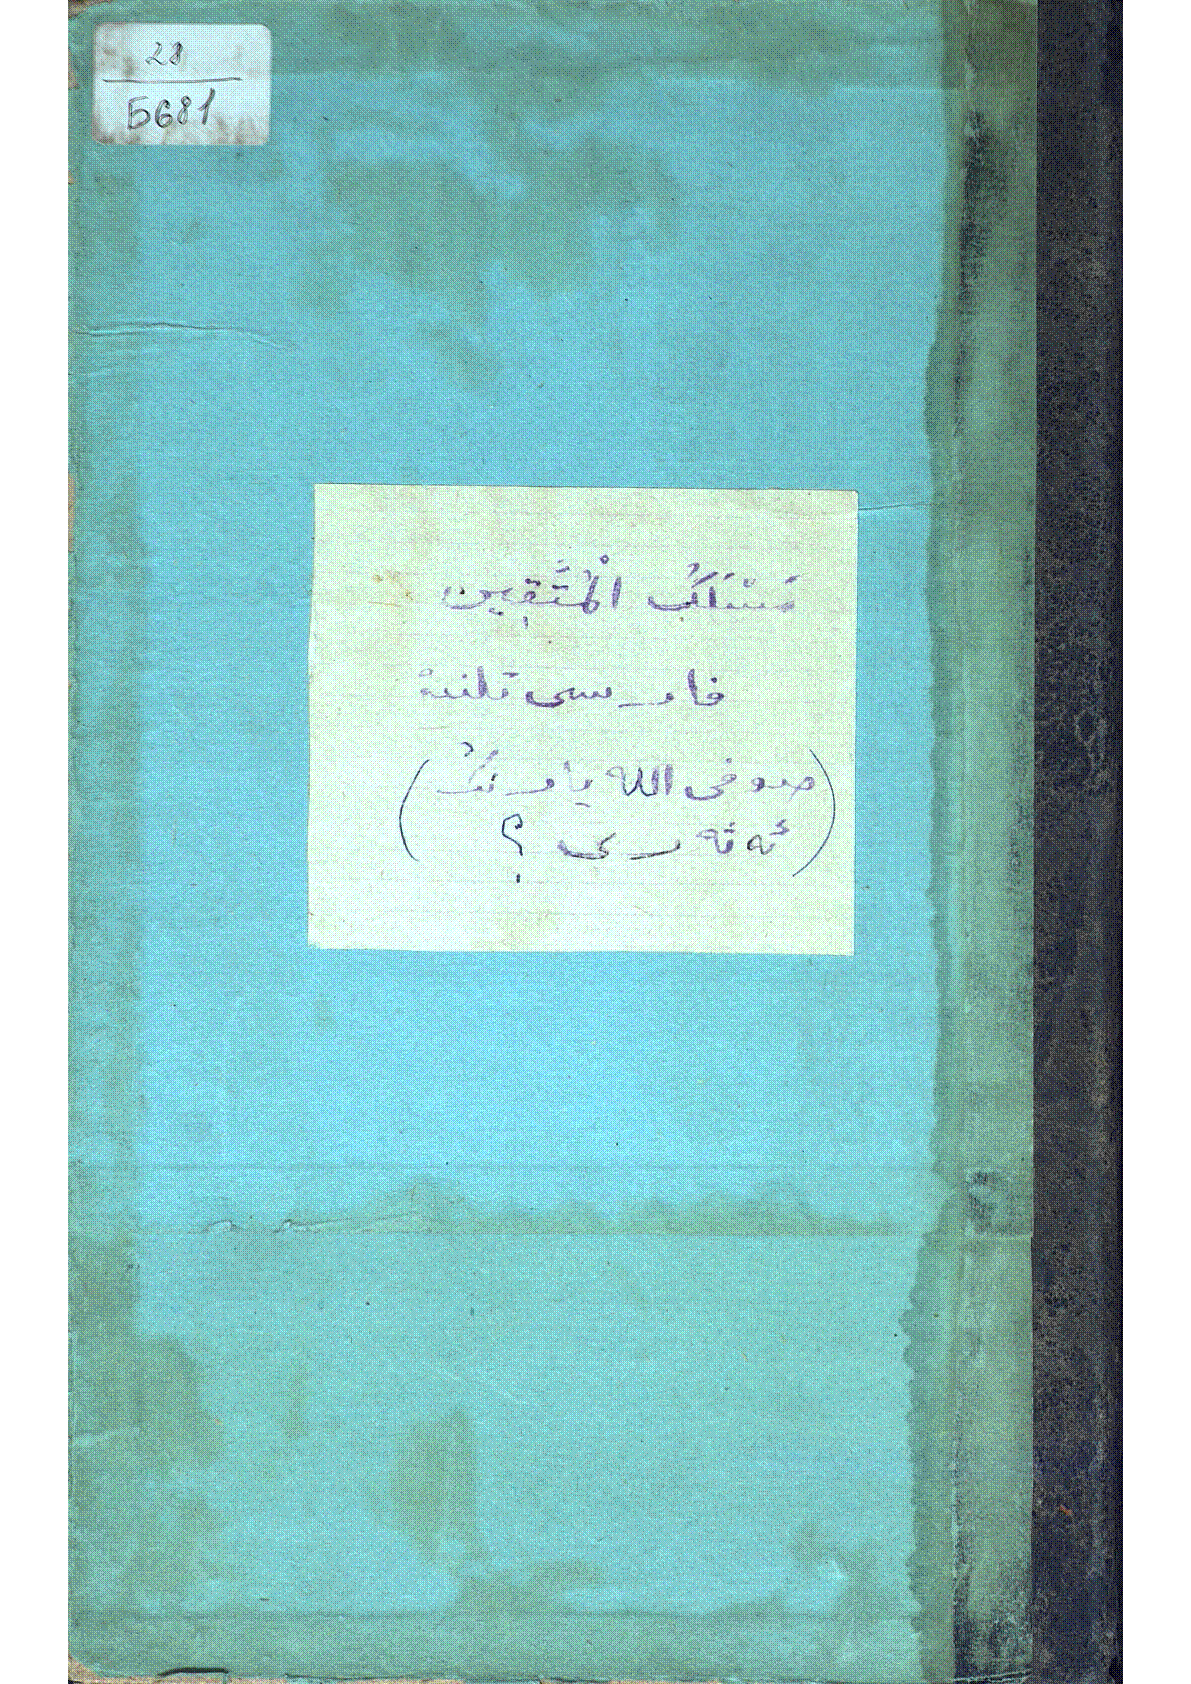 28
Б681
مَسْلَكُ الْمُتَّقِين
فارسی تلندہ
(صوفی الله یارنڭ
ئەثەری ؟)